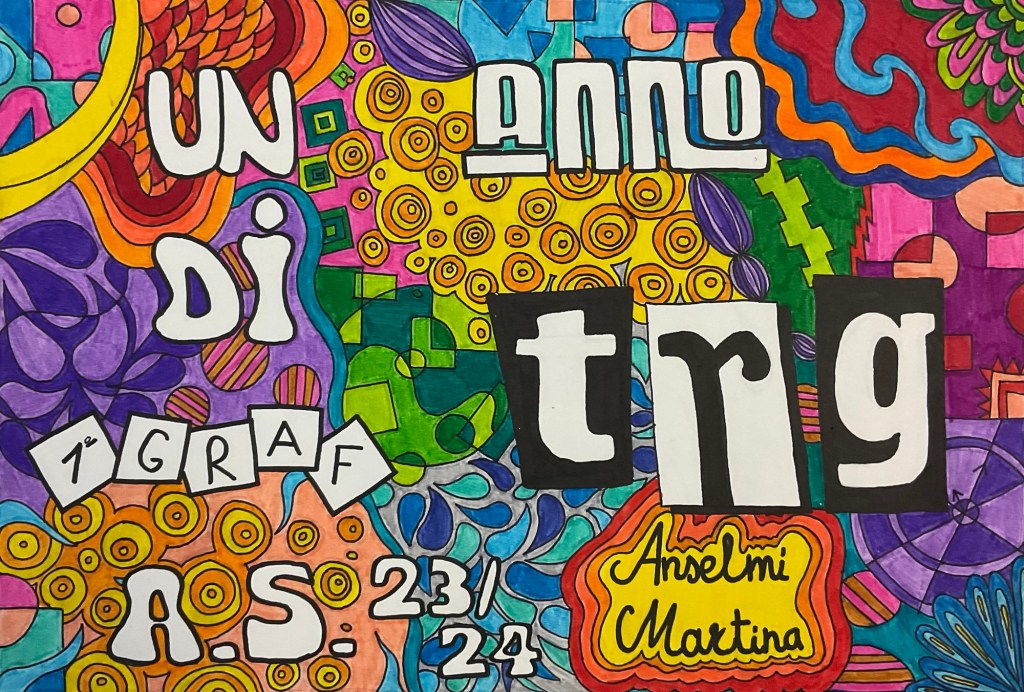 UN anno
Di
trg
1ª GRAF
Anselmi
Martina
A.S. 23/
24